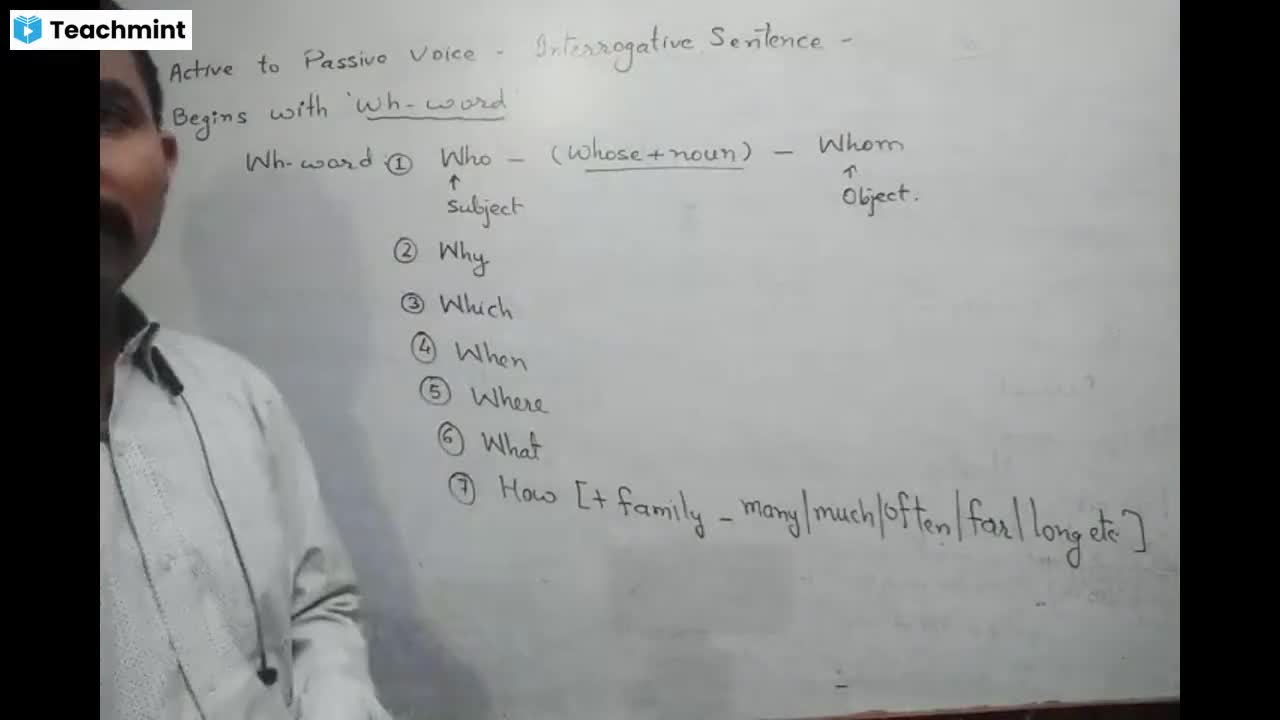 Teachmint
Active to Passive Voice - Interrogative Sentence -
Begins with 'Wh-word'
Wh-word ① Who - (Whose + noun) - Whom
↑ ↑
Subject Object.
② Why
③ Which
④ When
⑤ Where
⑥ What
⑦ How [+ family - many/much/often/far/long etc]